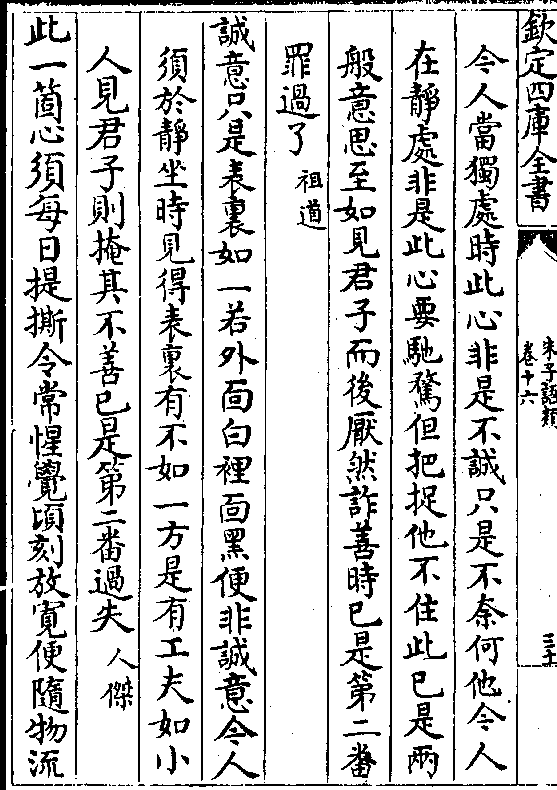 欽定四庫全書
朱子語類
卷十六
三十
今人當獨處時此心非是不誠只是不奈何他今人
在靜處非是此心要馳騖但把捉他不住此已是兩
般意思至如見君子而後厭然詐善時已是第二番
罪過了祖道
誠意只是表裏如一若外面白裡面黑便非誠意今人
須於靜坐時見得表裏有不如一方是有工夫如小
人見君子則掩其不善已是第二番過失人傑
此一箇心須每日提撕令常惺覺頃刻放寬便隨物流